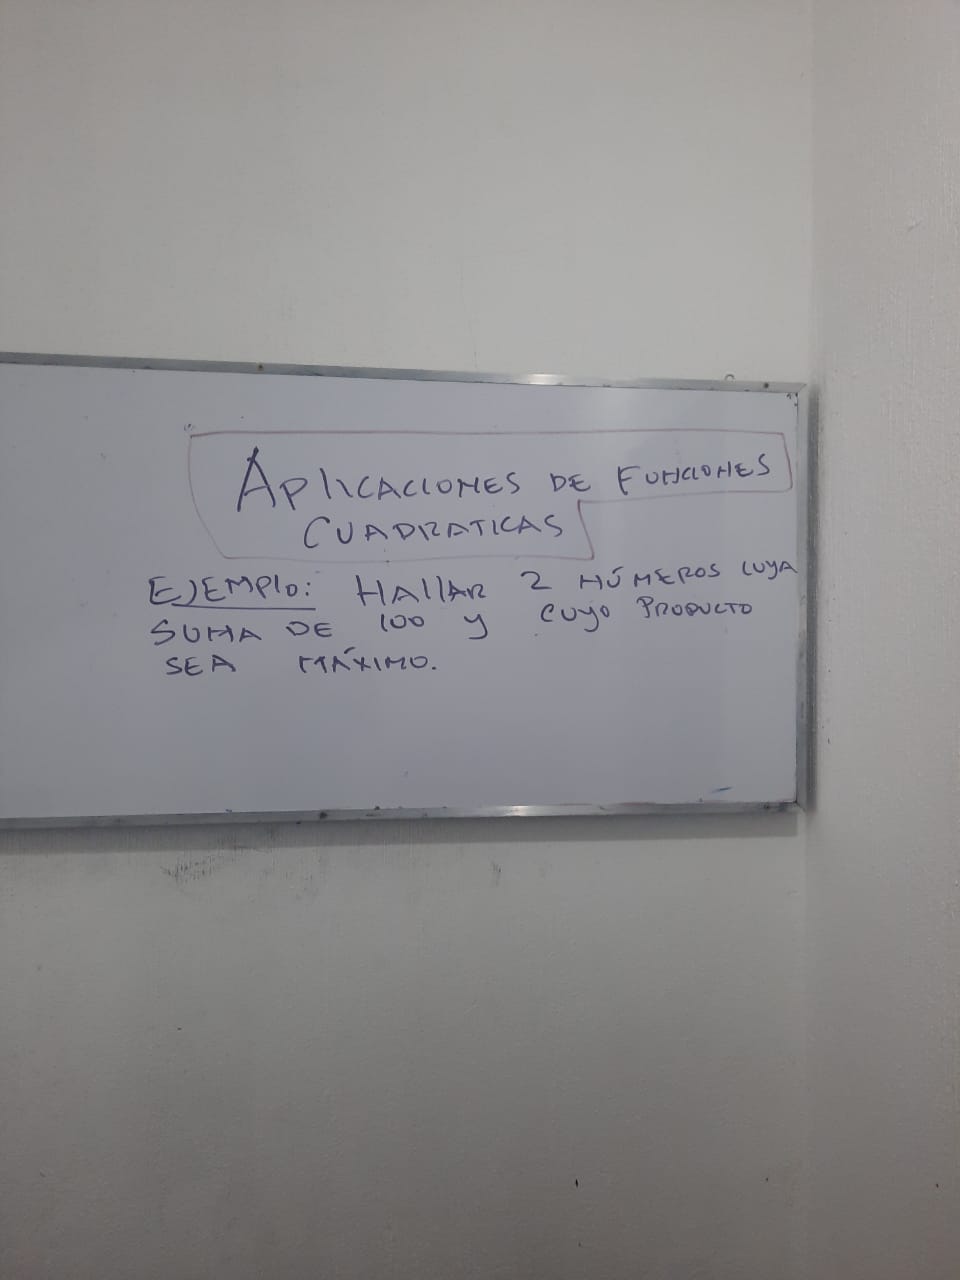 APLICACIONES DE FUNCIONES
CUADRATICAS
EJEMPLO: HALLAR 2 NÚMEROS CUYA
SUMA DE 100 Y CUYO PRODUCTO
SEA MÁXIMO.